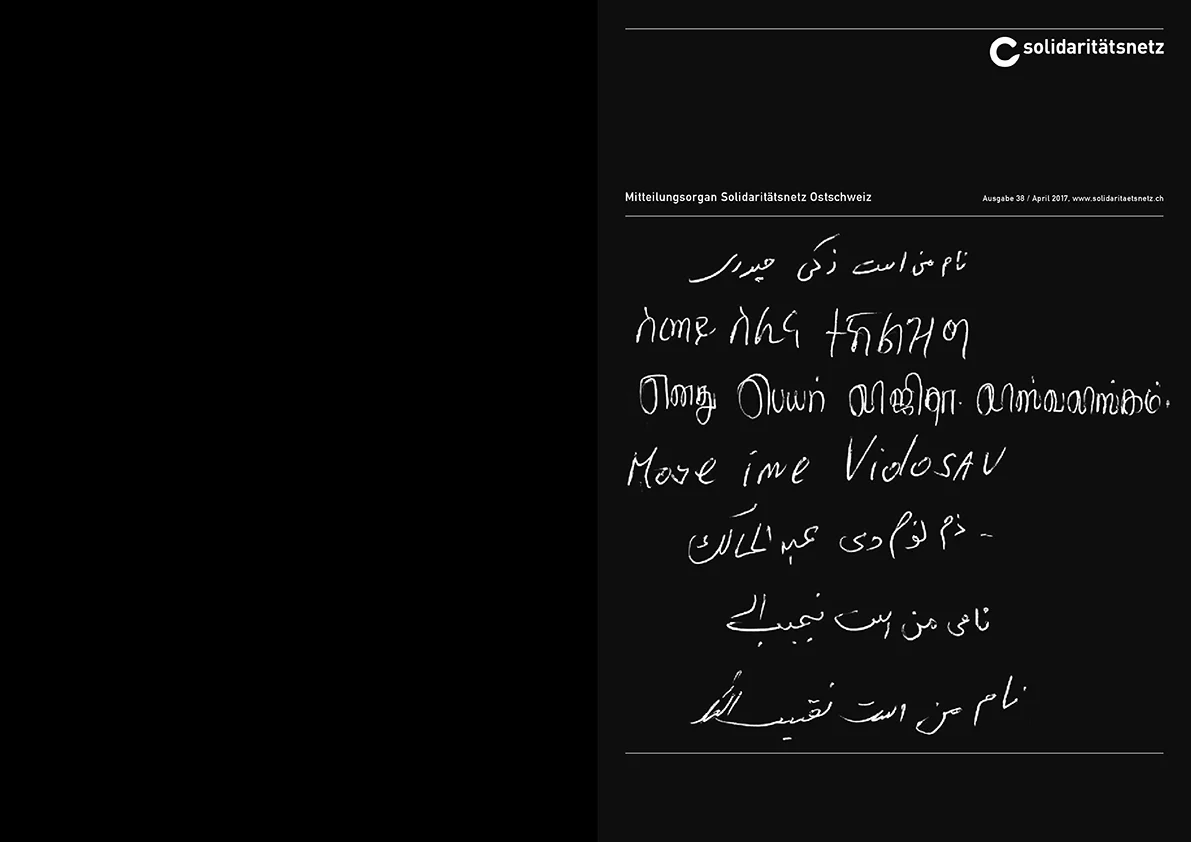 solidaritätsnetz
Mitteilungsorgan Solidaritätsnetz Ostschweiz
Ausgabe 38 / April 2017, www.solidaritaetsnetz.ch
نام من است زکی حیدری
ስመይ
எனது பெயர் விஜிதா.
Moje ime VidosAV
زم نوم دی عبدالمالک
نامی من است نجیب
نام من است نقیب الله